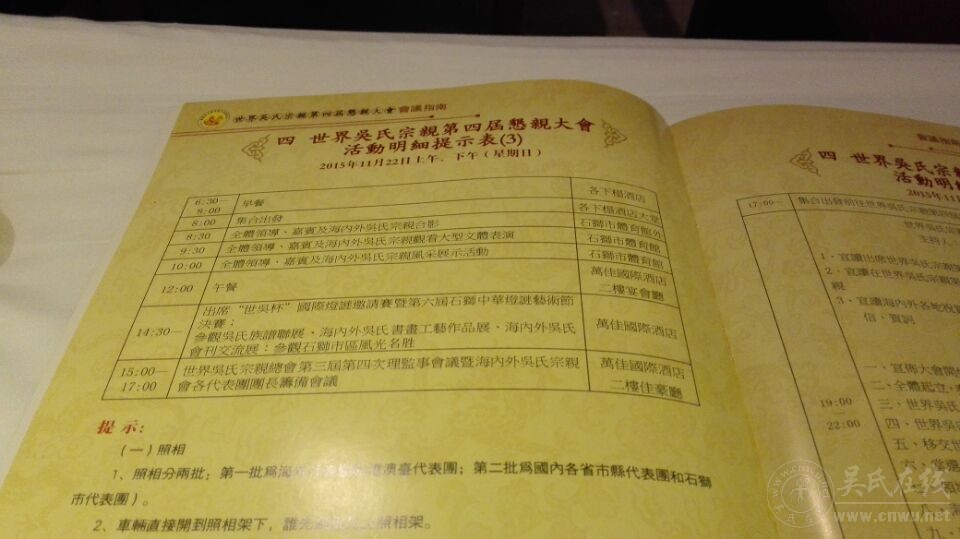 世界吳氏宗親第四屆懇親大會 會議指南
四 世界吳氏宗親第四屆懇親大會
活動明細提示表(3)
2015年11月22日上午、下午（星期日）
6:30—
8:00
早餐
各下榻酒店
8:00
集合出發
各下榻酒店大堂
8:30
全體領導、嘉賓及海內外吳氏宗親合影
石獅市體育館外
9:30
全體領導、嘉賓及海內外吳氏宗親觀看大型文體表演
石獅市體育館
10:00
全體領導、嘉賓及海內外吳氏宗親風采展示活動
石獅市體育館
12:00
午餐
萬佳國際酒店
二樓宴會廳
14:30—
出席“世吳杯”國際燈謎邀請賽暨第六屆石獅中華燈謎藝術節
決賽；
參觀吳氏族譜聯展、海內外吳氏書畫工藝作品展、海內外吳氏
會刊交流展；參觀石獅市區風光名胜
萬佳國際酒店
15:00—
17:00
世界吳氏宗親總會第三屆第四次理監事會議暨海內外吳氏宗親
會各代表團團長籌備會議
萬佳國際酒店
二樓佳豪廳
提示：
（一）照相
1、照相分兩批：第一批爲海外 港澳臺代表團；第二批爲國內各省市縣代表團和石獅
市代表團）。
2、車輛直接開到照相架下，誰先 上照相架。
四 世界吳氏宗親
活動明
2015年11
17:00—
集合出發前往世界吳氏宗親第四屆
世界吳氏宗
主持人
1、宣讀出席世界吳氏宗親第
2、宣讀在世界吳氏宗親第
親
3、宣讀海內外各地祝
信、賀詞
19:00
—
22:00
一、宣佈大會開
二、全體起立，
三、世界吳氏
四、世界吳
五、移交世
六、
七、
八、
九、
吳氏在线
www.cnwu.net